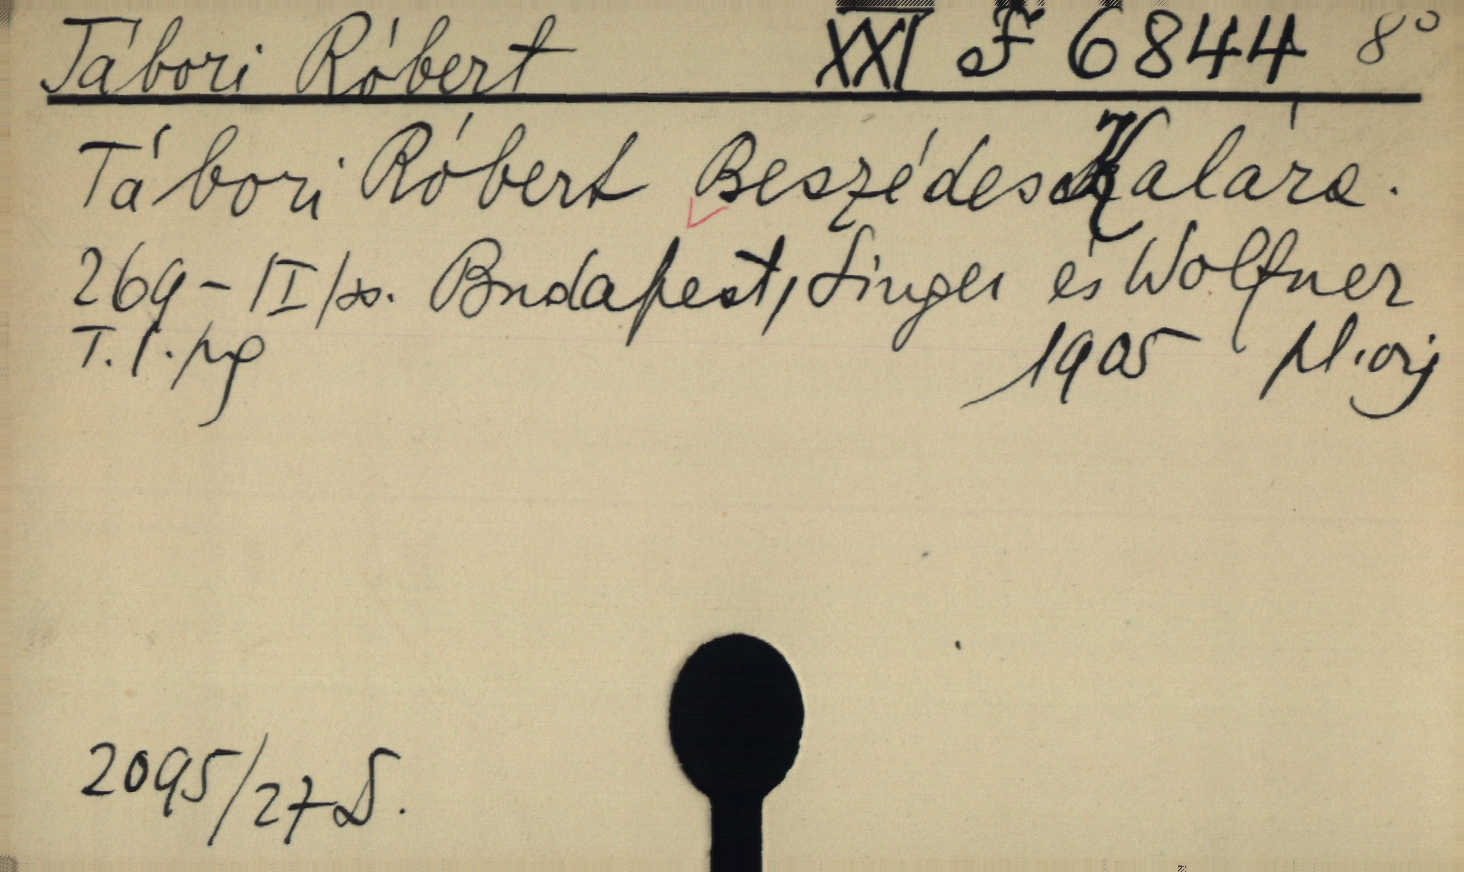 Tábori Róbert XXI F 6844 8°
Tábori Róbert Beszédes Kalára.
269-1I/
Budapest, Singer és Wolfner
T. 1.
1905
2095/27 S.